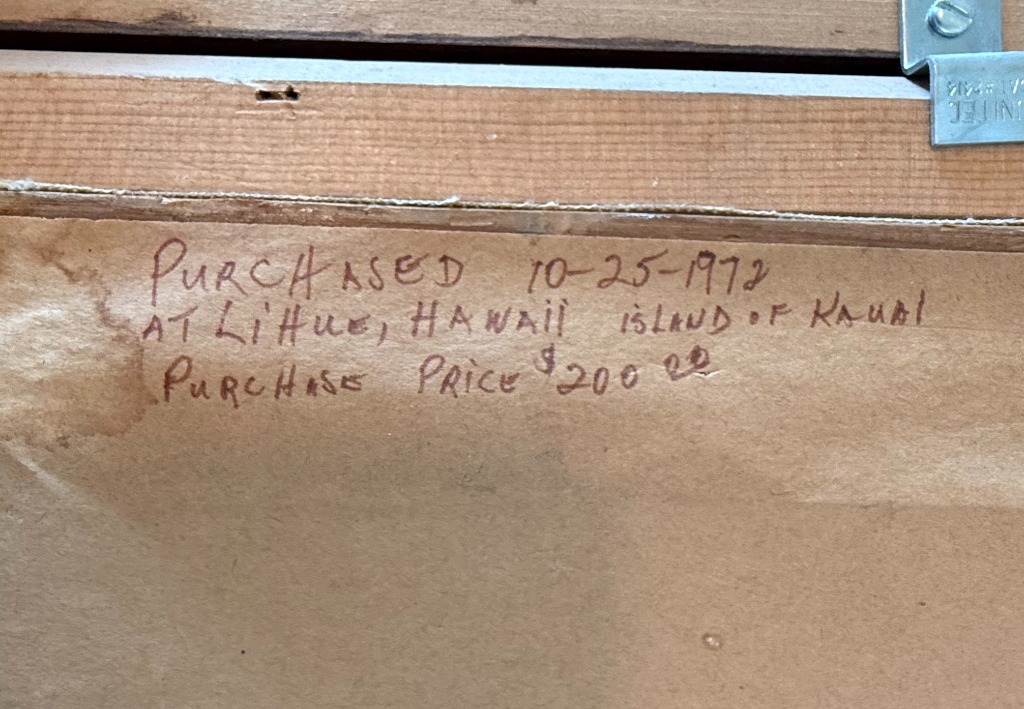 PURCHASED 10-25-1972
AT LIHUE, HAWAII ISLAND OF KAUAI
PURCHASE PRICE $200 00